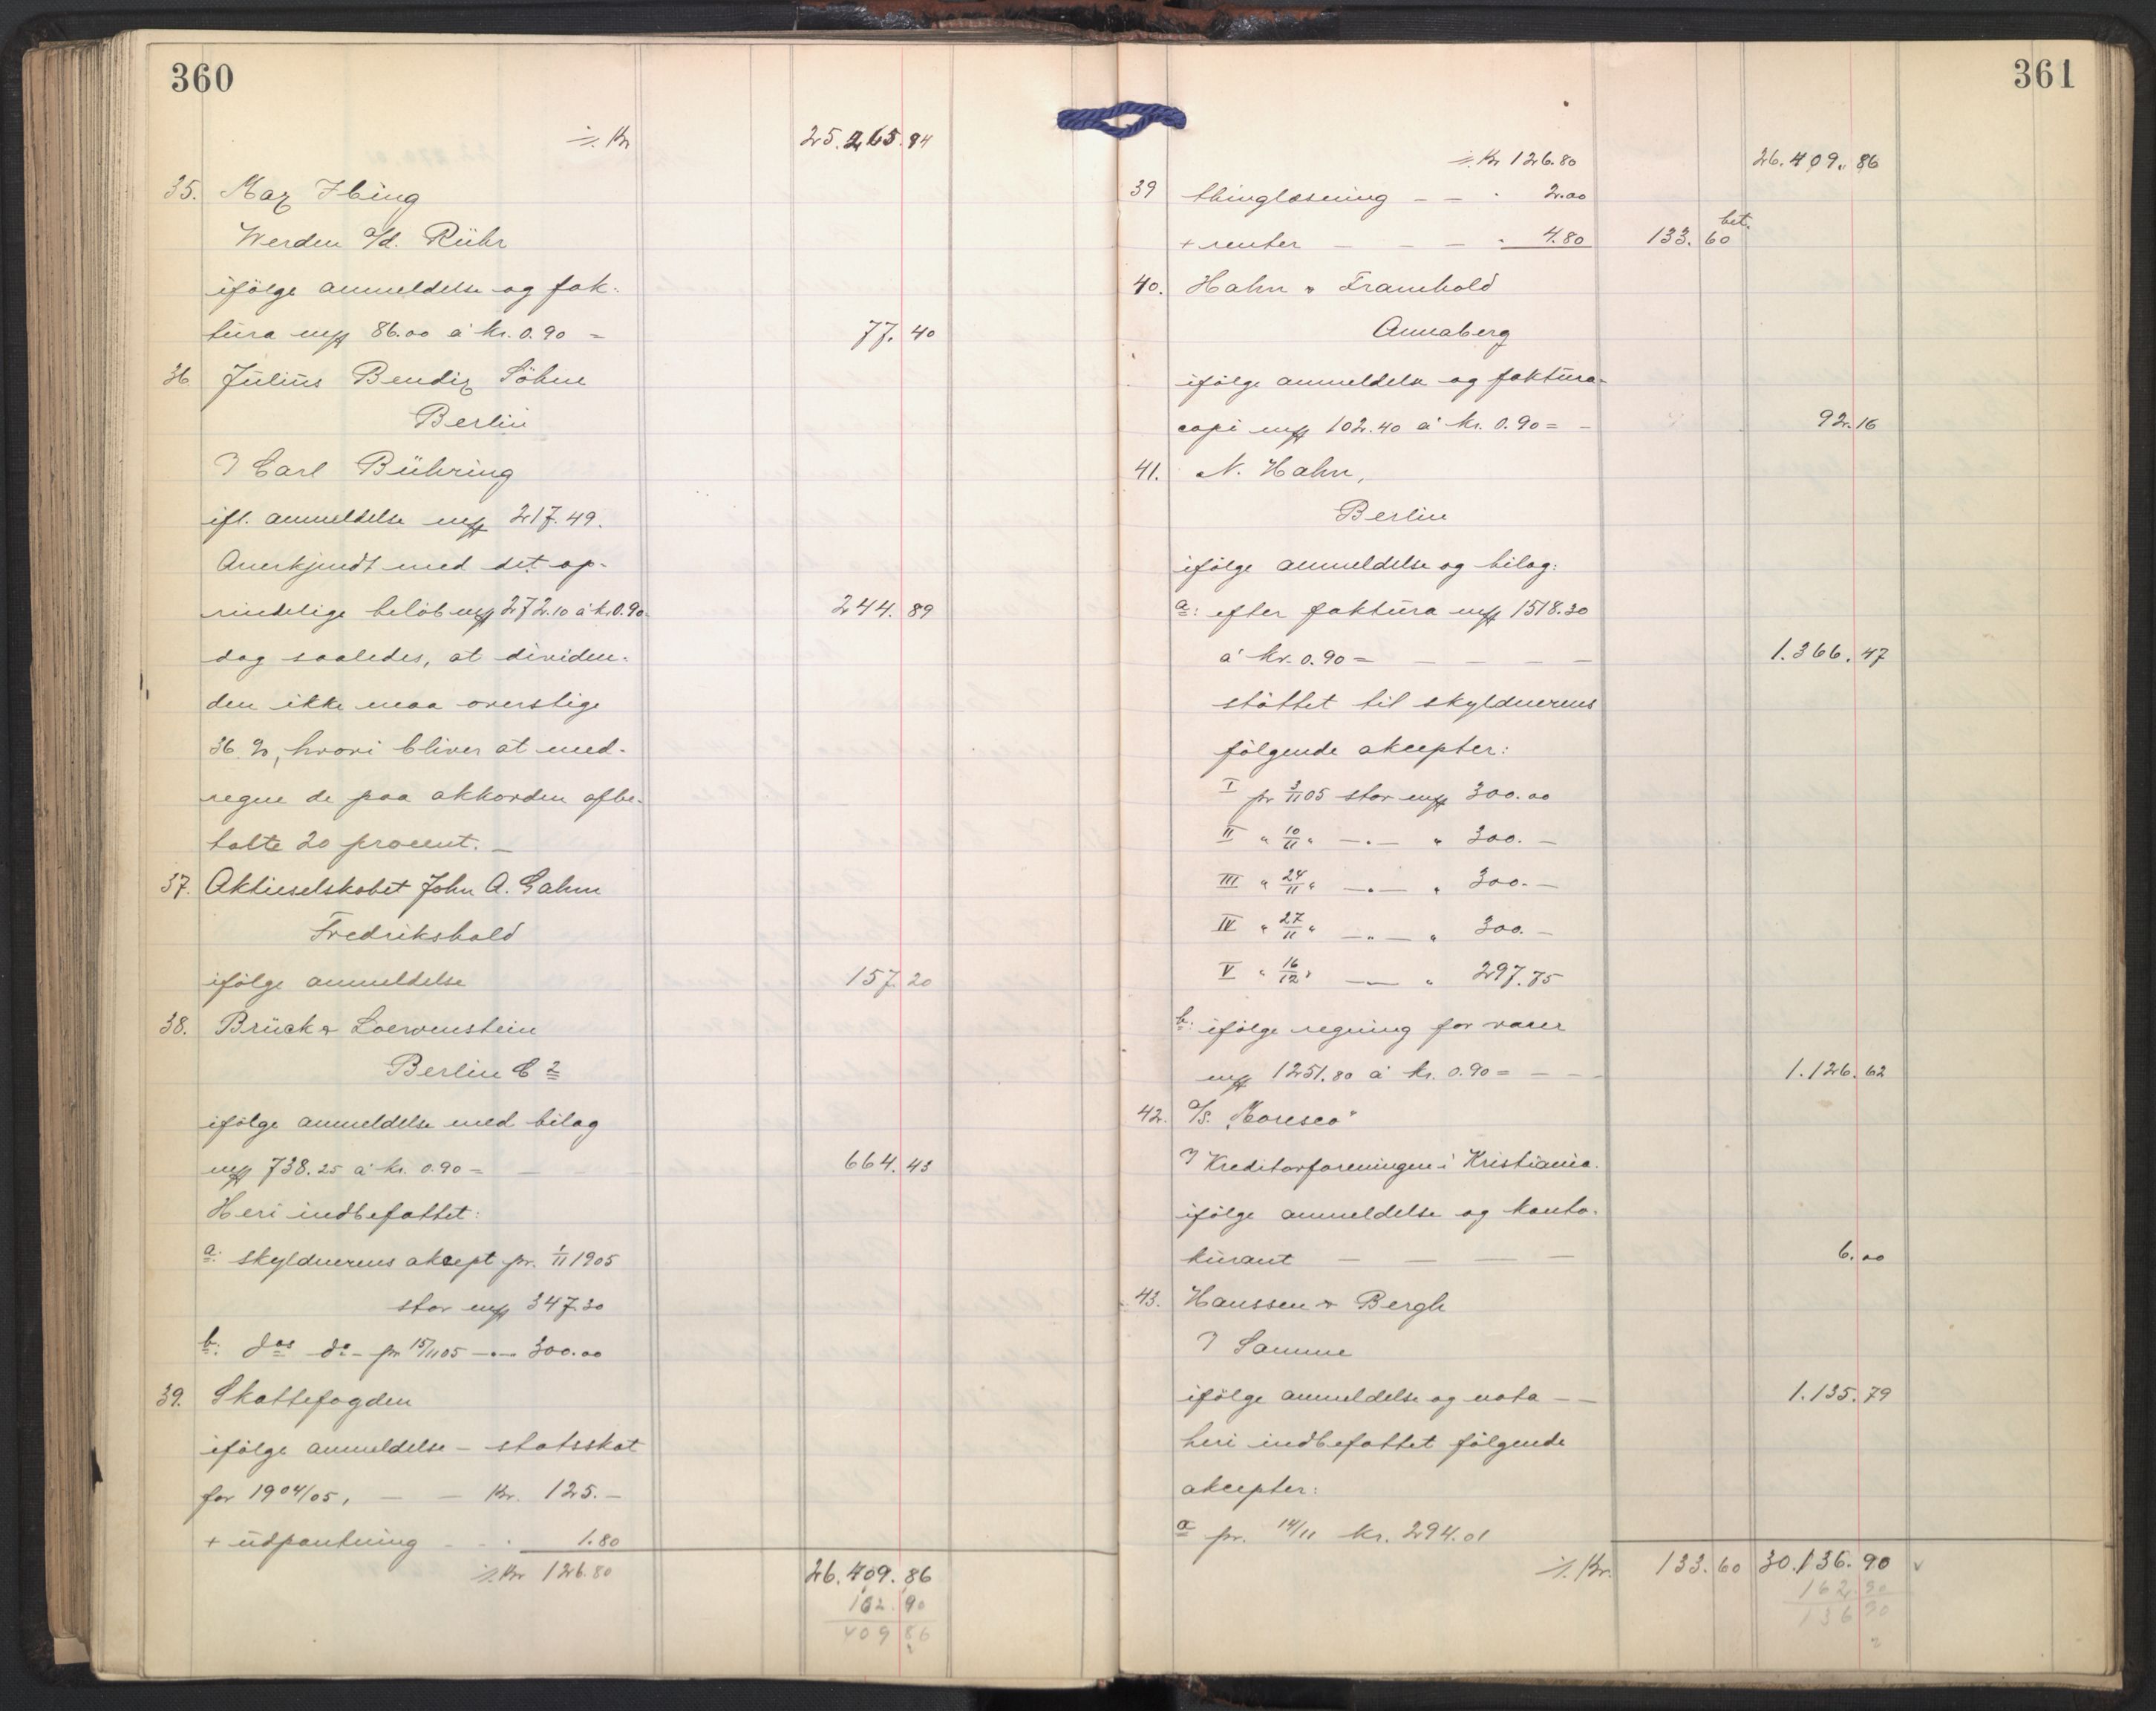 360
./. Kr 25.265.94
35. Max Ibing
Werden a/d. Rühr
ifölge anmeldelse og fak-
tura mk 86.00 á kr. 0.90 = 77.40
36 Julius Bendix Söhne
Berlin
Carl Bühring
ifl. anmeldelse mk 217.49.
Anerkjendt med det op-
rindelige belöb mk 272.10 á kr 0.90 244.89
dog saaledes, at dividen-
den ikke maa overstige
36 %, hvori bliver at med-
regne de paa akkorden afbe-
talte 20 procent. —
37. Aktieselskabet John A. Gahm
Fredrikshald
ifölge anmeldelse 157.20
38. Brück & Loewenstein
Berlin C 2
ifölge anmeldelse med bilag
mk 738.25 á kr. 0.90 = — — — 664.43
Heri indbefattet:
a: skyldnerens akcept pr. 1/11 1905
stor mk 347.30
b: dos do - pr 15/11 05 —„— 300.00
39. Skattefogden
ifölge anmeldelse — statsskat
for 1904/05, — — Kr. 125.—
+ udpantning - - 1.80
./. Kr 126.80 26.409.86
162.90
409 86
361
./. Kr 126.80 26.409.86
39 thinglæsning — — " 2.00
bet.
+ renter — — — " 4.80 133.60
40. Hahn & Tramhold
Annaberg
ifölge anmeldelse og faktura-
copi mk 102.40 á kr. 0.90 = - 92.16
41. N. Hahn,
Berlin
ifölge anmeldelse og bilag:
a: efter faktura mk 1518.30
á kr. 0.90 = — — — — 1.366.47
stöttet til skyldnerens
fölgende akcepter:
I pr 3/11 05 stor mk 300.00
II " 10/11 " —„— " 300.—
III " 24/11 " —„— " 300.—
IV " 27/11 " —„— " 300.—
V " 16/12 " —„— " 297.75
b: ifölge regning for varer
mk 1251.80 á kr. 0.90 = — — 1.126.62
42. A/S.
Kreditorforeningen i Kristiania.
ifölge anmeldelse og konto-
kurant — — — — 6.00
43. Hanssen & Bergh
Samme
ifölge anmeldelse og nota — — 1.135.79
heri indbefattet fölgende
akcepter:
a pr. 14/11 kr. 294.01
./. Kr. 133.60 30.136.90
162.90
136 90